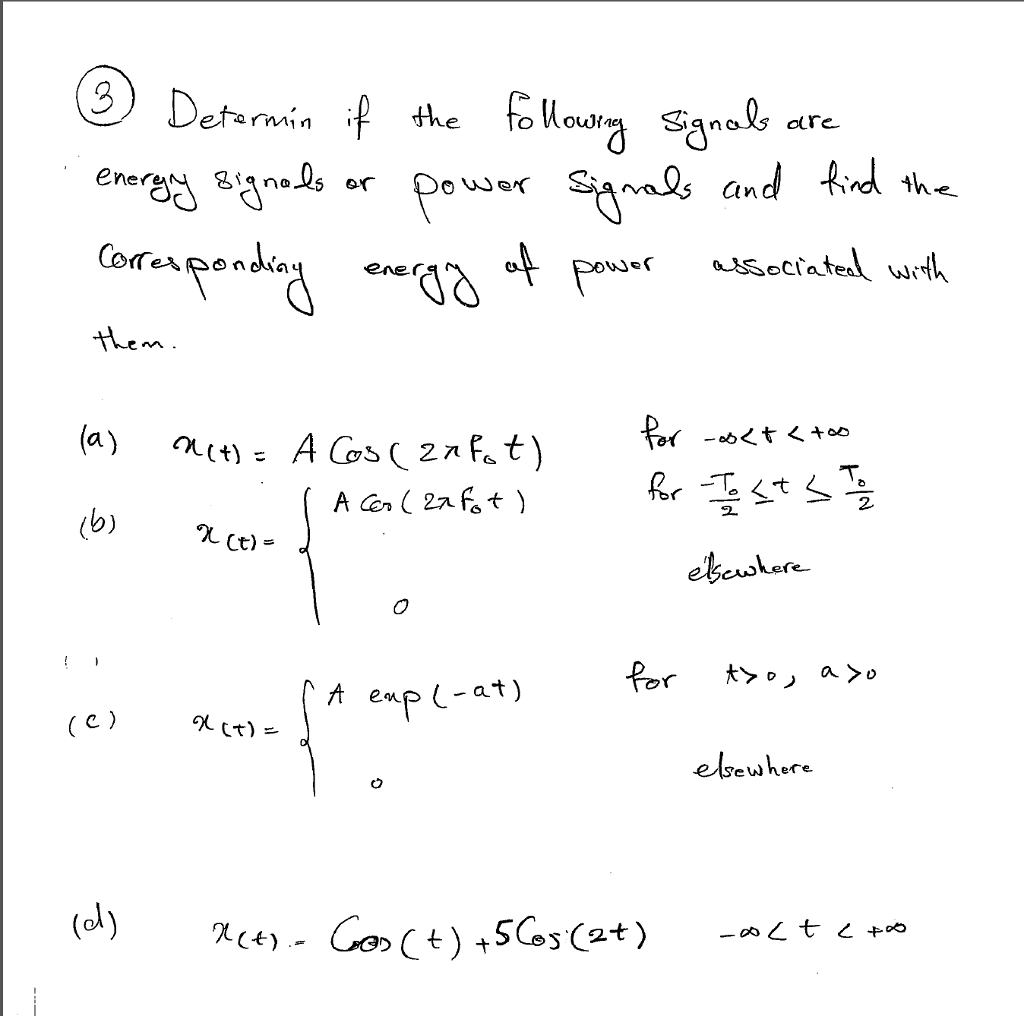 ③ Determin if the following signals are
energy signals or power signals and find the
Corresponding energy of power associated with
them.
(a) x(t) = A Cos(2πf₀t) for -∞<t<+∞
(b) x(t) = { A Cos(2πf₀t) for -T₀/2 ≤ t ≤ T₀/2
0 elsewhere
(c) x(t) = { A exp(-at) for t>0, a>0
0 elsewhere
(d) x(t) = Cos(t) + 5 Cos(2t) -∞ < t < +∞